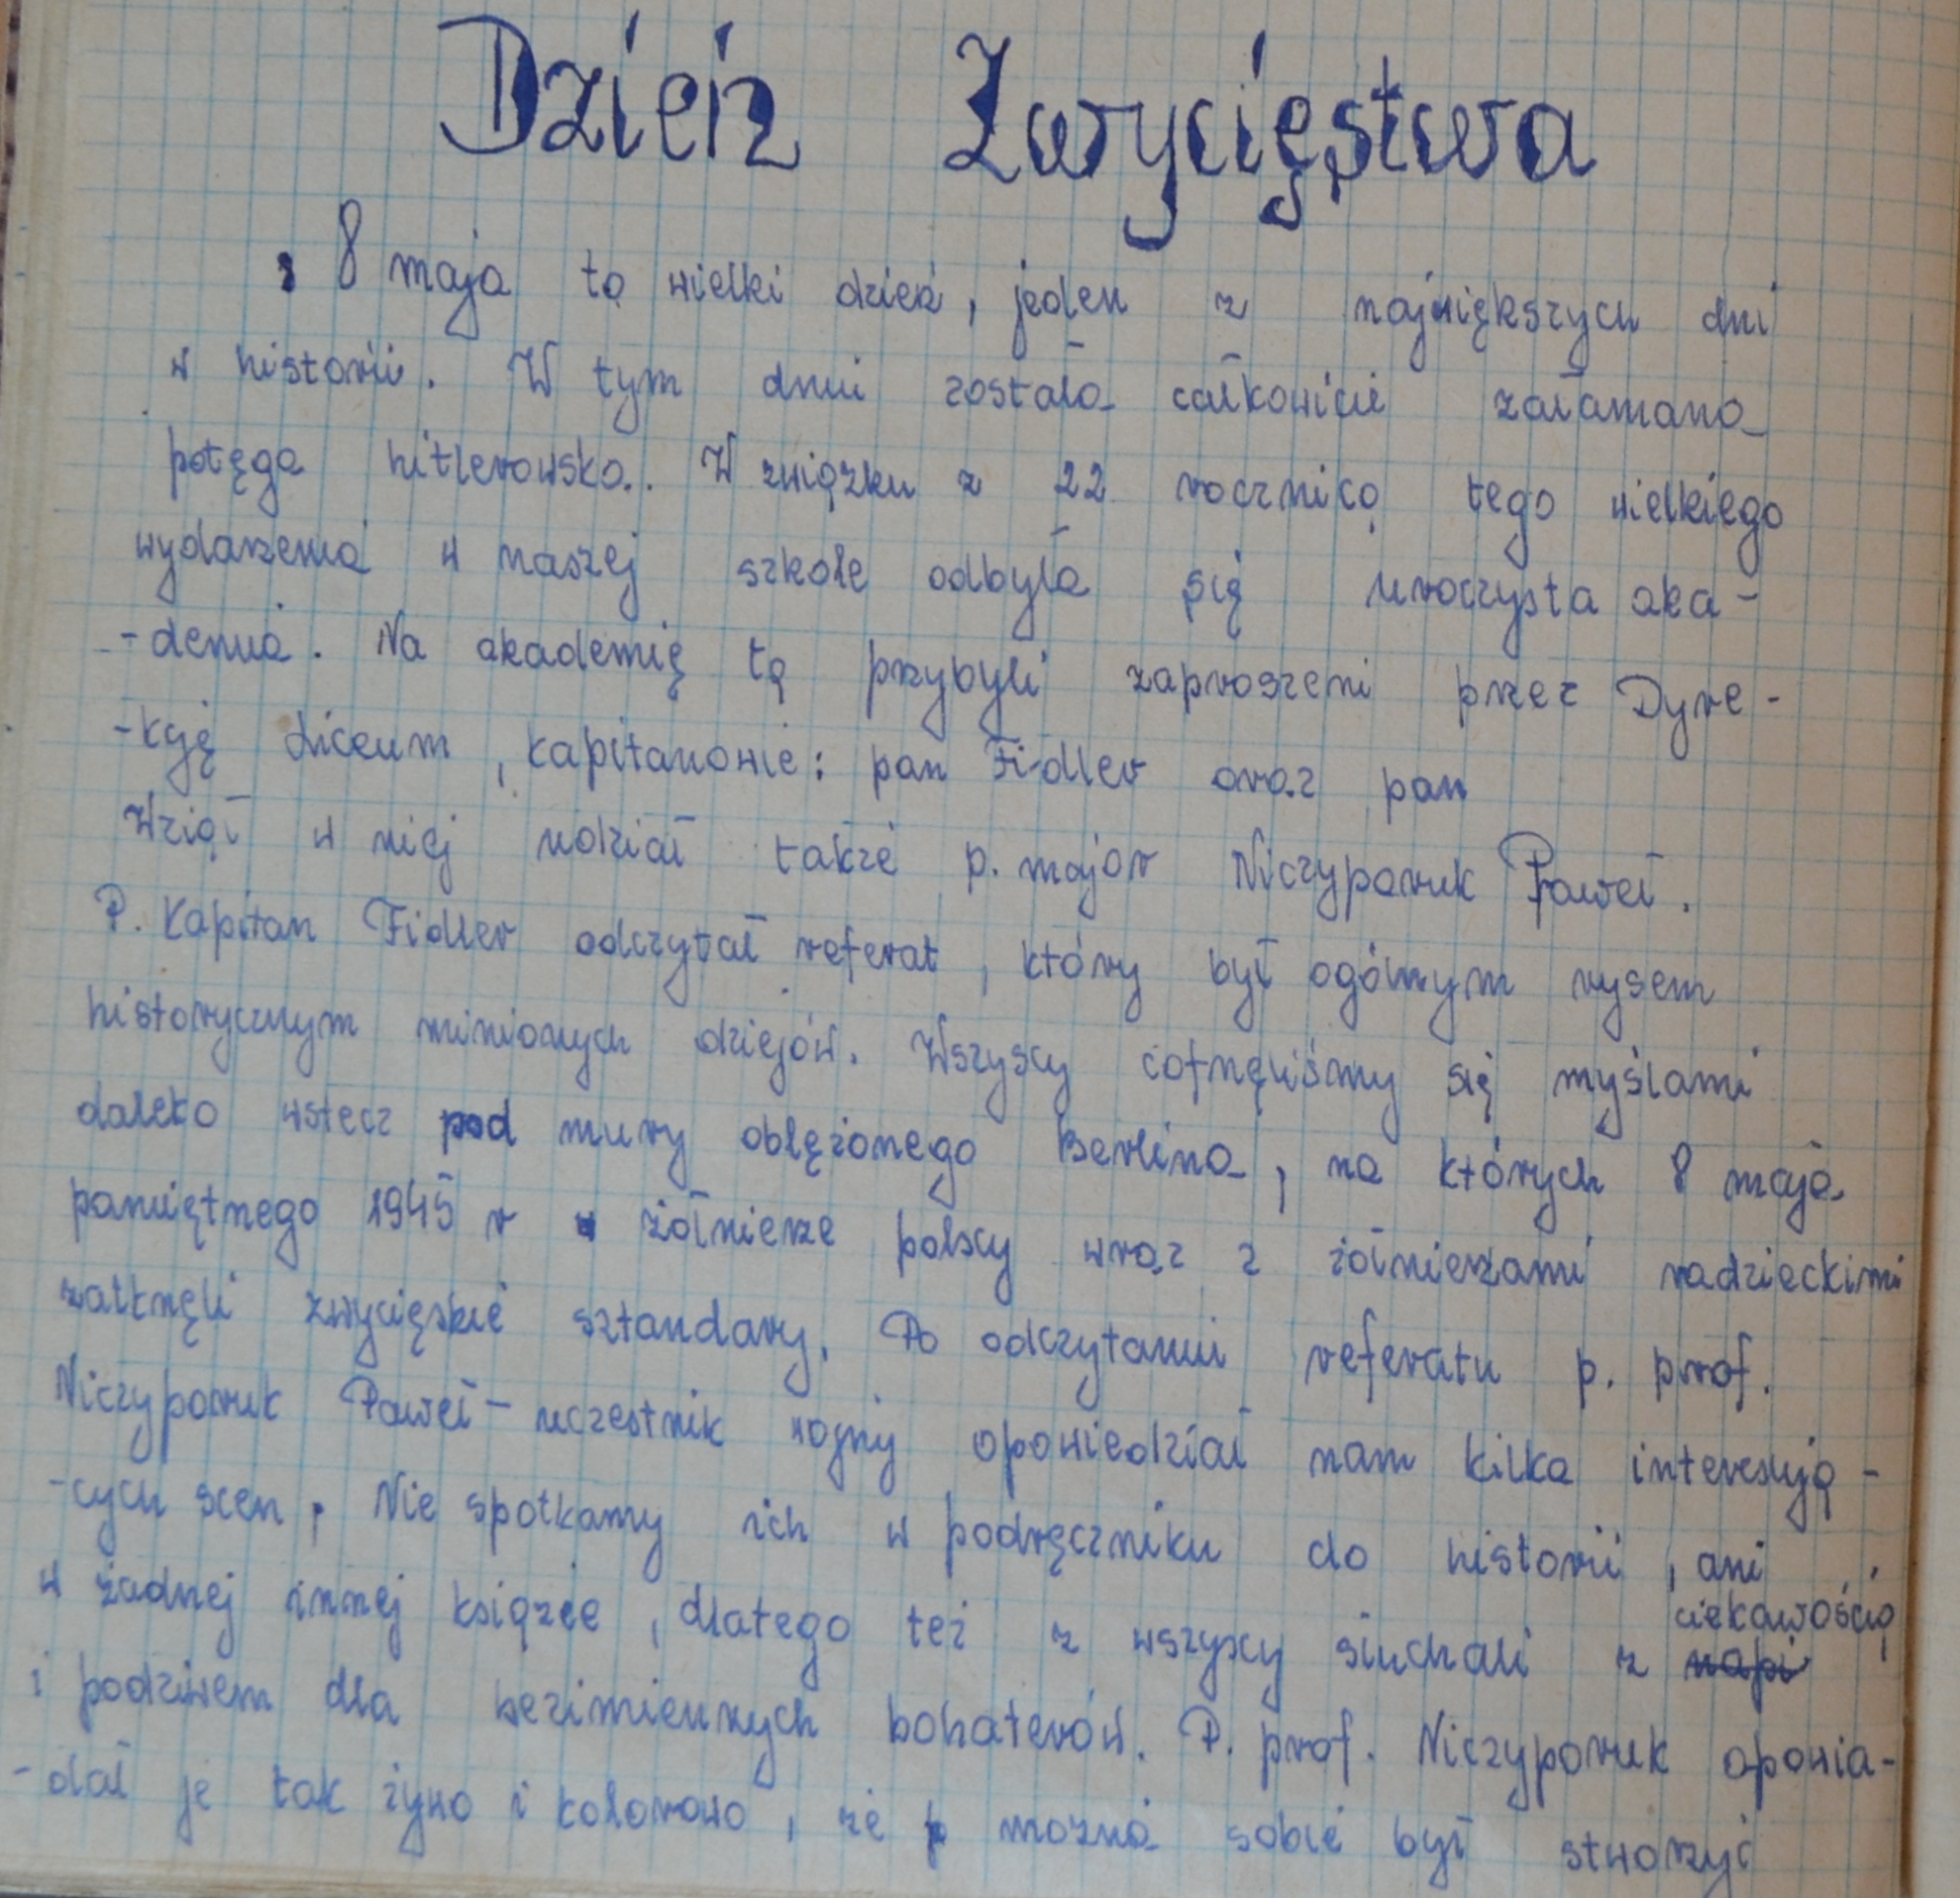 Dzień Zwycięstwa
8 maja to wielki dzień, jeden z największych dni
w historii. W tym dniu została całkowicie załamana
potęga hitlerowska. W związku z 22 rocznicą tego wielkiego
wydarzenia w naszej szkole odbyła się uroczysta aka-
-demia. Na akademię tą przybyli zaproszeni przez Dyre-
-kcję Liceum, kapitanowie: pan Fidler oraz pan
Wziął w niej udział także p. major Niczyporuk Paweł.
P. Kapitan Fidler odczytał referat, który był ogólnym rysem
historycznym minionych dziejów. Wszyscy cofnęliśmy się myślami
daleko wstecz pod mury oblężonego Berlina, na których 8 maja
pamiętnego 1945 r żołnierze polscy wraz z żołnierzami radzieckimi
zatknęli zwycięskie sztandary. Po odczytaniu referatu p. prof.
Niczyporuk Paweł - uczestnik wojny opowiedział nam kilka interesują-
-cych scen. Nie spotkamy ich w podręczniku do historii, ani
w żadnej innej książce, dlatego też z wszyscy słuchali z napi ciekawością
i podziwem dla bezimiennych bohaterów. P. prof. Niczyporuk opowia-
-dał je tak żywo i kolorowo, że można sobie był stworzyć